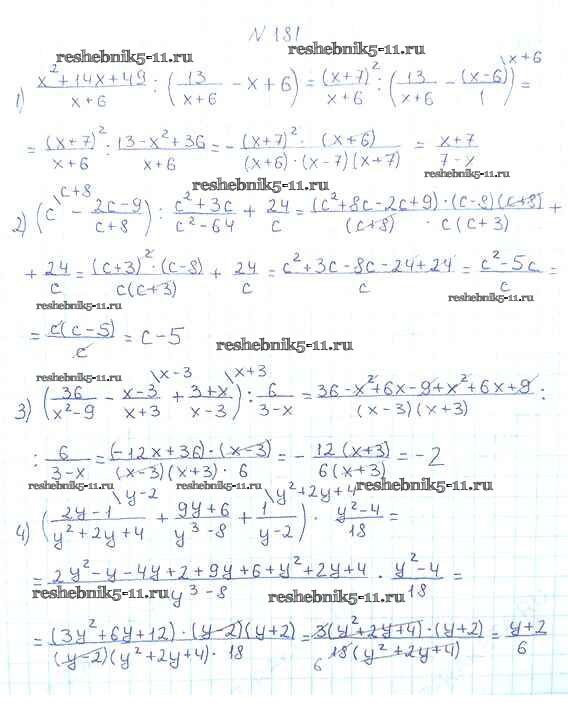 № 181
reshebnik5-11.ru reshebnik5-11.ru
1) (x²+14x+49)/(x+6) : (13/(x+6) - x + 6) = (x+7)²/(x+6) : (13/(x+6) - (x-6)/1 \x+6) =
= (x+7)²/(x+6) : (13-x²+36)/(x+6) = - ((x+7)² · (x+6))/((x+6)·(x-7)(x+7)) = (x+7)/(7-x)
reshebnik5-11.ru reshebnik5-11.ru
2) (c \c+8 - (2c-9)/(c+8)) : (c²+3c)/(c²-64) + 24/c = ((c²+8c-2c+9)·(c-8)(c+8))/((c+8) · c(c+3)) +
+ 24/c = ((c+3)²·(c-8))/(c(c+3)) + 24/c = (c²+3c-8c-24+24)/c = (c²-5c)/c =
reshebnik5-11.ru reshebnik5-11.ru
= c(c-5)/c = c-5
reshebnik5-11.ru
reshebnik5-11.ru
3) (36/(x²-9) - (x-3)/(x+3) \x-3 + (3+x)/(x-3) \x+3) : 6/(3-x) = (36-x²+6x-9+x²+6x+9)/((x-3)(x+3)) :
: 6/(3-x) = ((-12x+36)·(x-3))/((x-3)(x+3)·6) = - 12(x+3)/6(x+3) = -2
reshebnik5-11.ru reshebnik5-11.ru reshebnik5-11.ru
4) ((2y-1)/(y²+2y+4) \y-2 + (9y+6)/(y³-8) + 1/(y-2) \y²+2y+4) · (y²-4)/18 =
= (2y²-y-4y+2+9y+6+y²+2y+4)/(y³-8) · (y²-4)/18 =
reshebnik5-11.ru reshebnik5-11.ru
= ((3y²+6y+12)·(y-2)(y+2))/((y-2)(y²+2y+4)·18) = (3(y²+2y+4)·(y+2))/(6 18(y²+2y+4)) = (y+2)/6